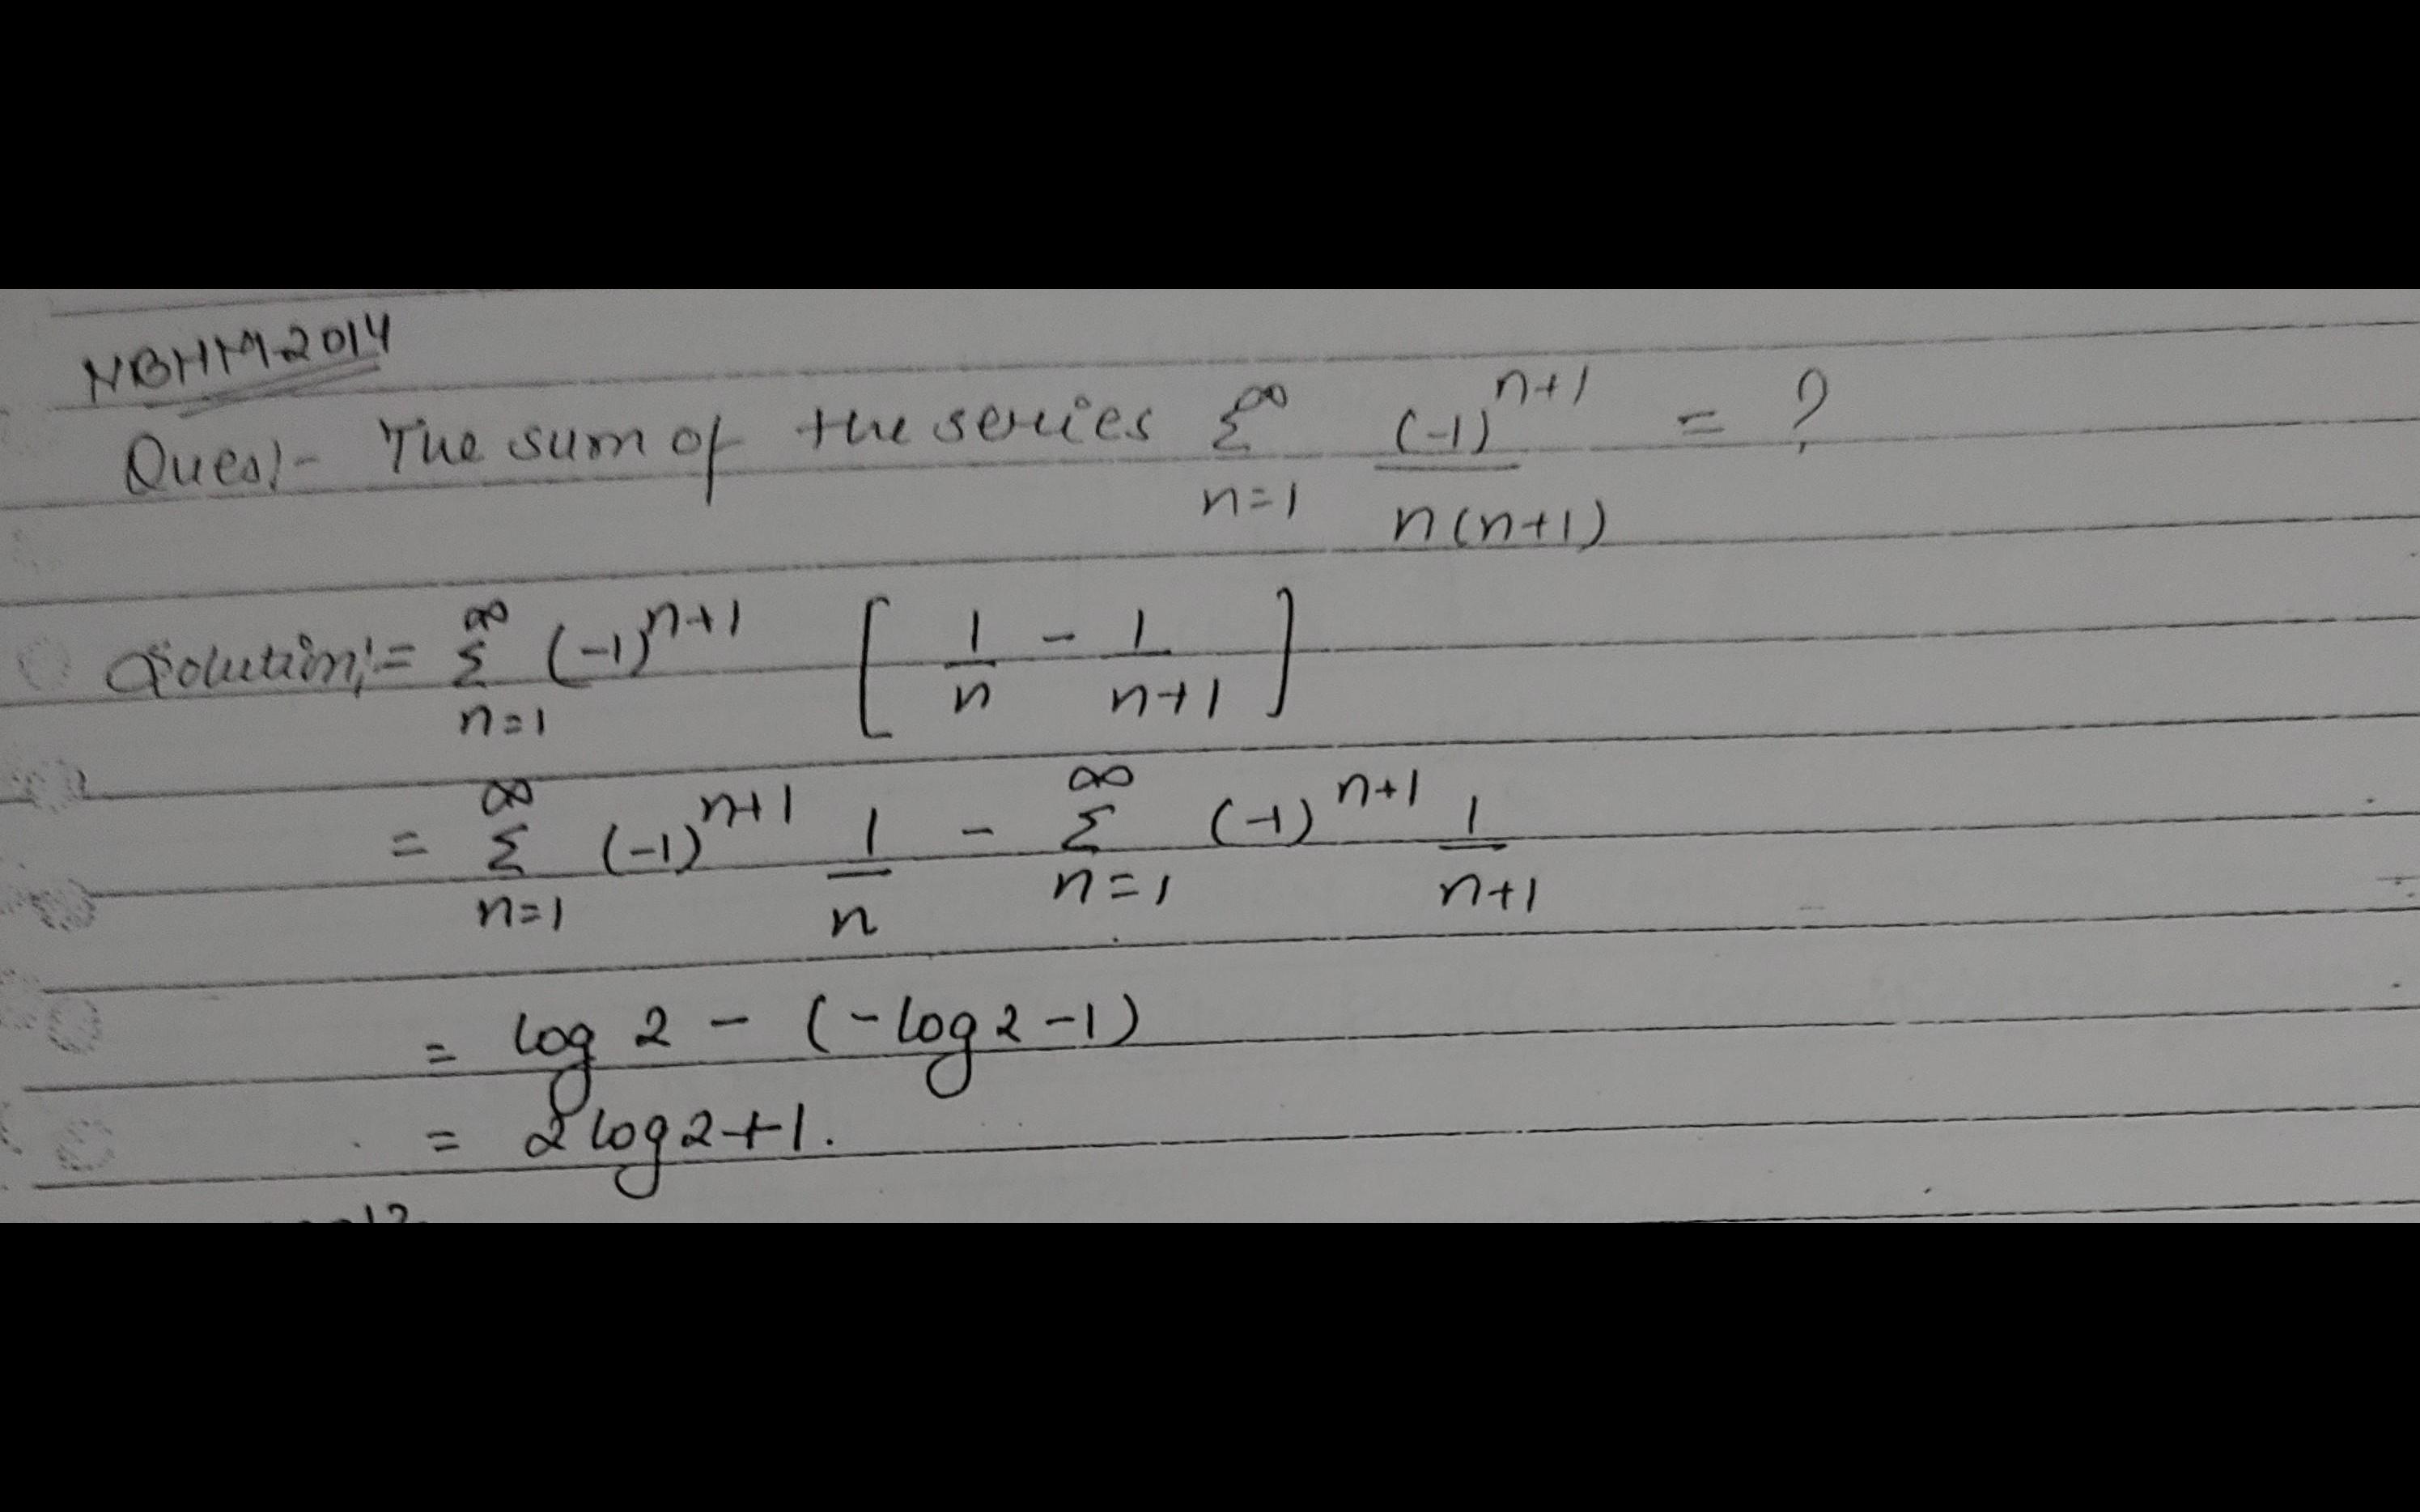 NBHM-2014
Ques:- The sum of the series ∞ Σ n=1 (-1)^{n+1} / n(n+1) = ?
Solution:= ∞ Σ n=1 (-1)^{n+1} [ 1/n - 1/n+1 ]
= ∞ Σ n=1 (-1)^{n+1} 1/n - ∞ Σ n=1 (-1)^{n+1} 1/n+1
= log 2 - (-log 2 -1)
= 2 log 2 + 1.